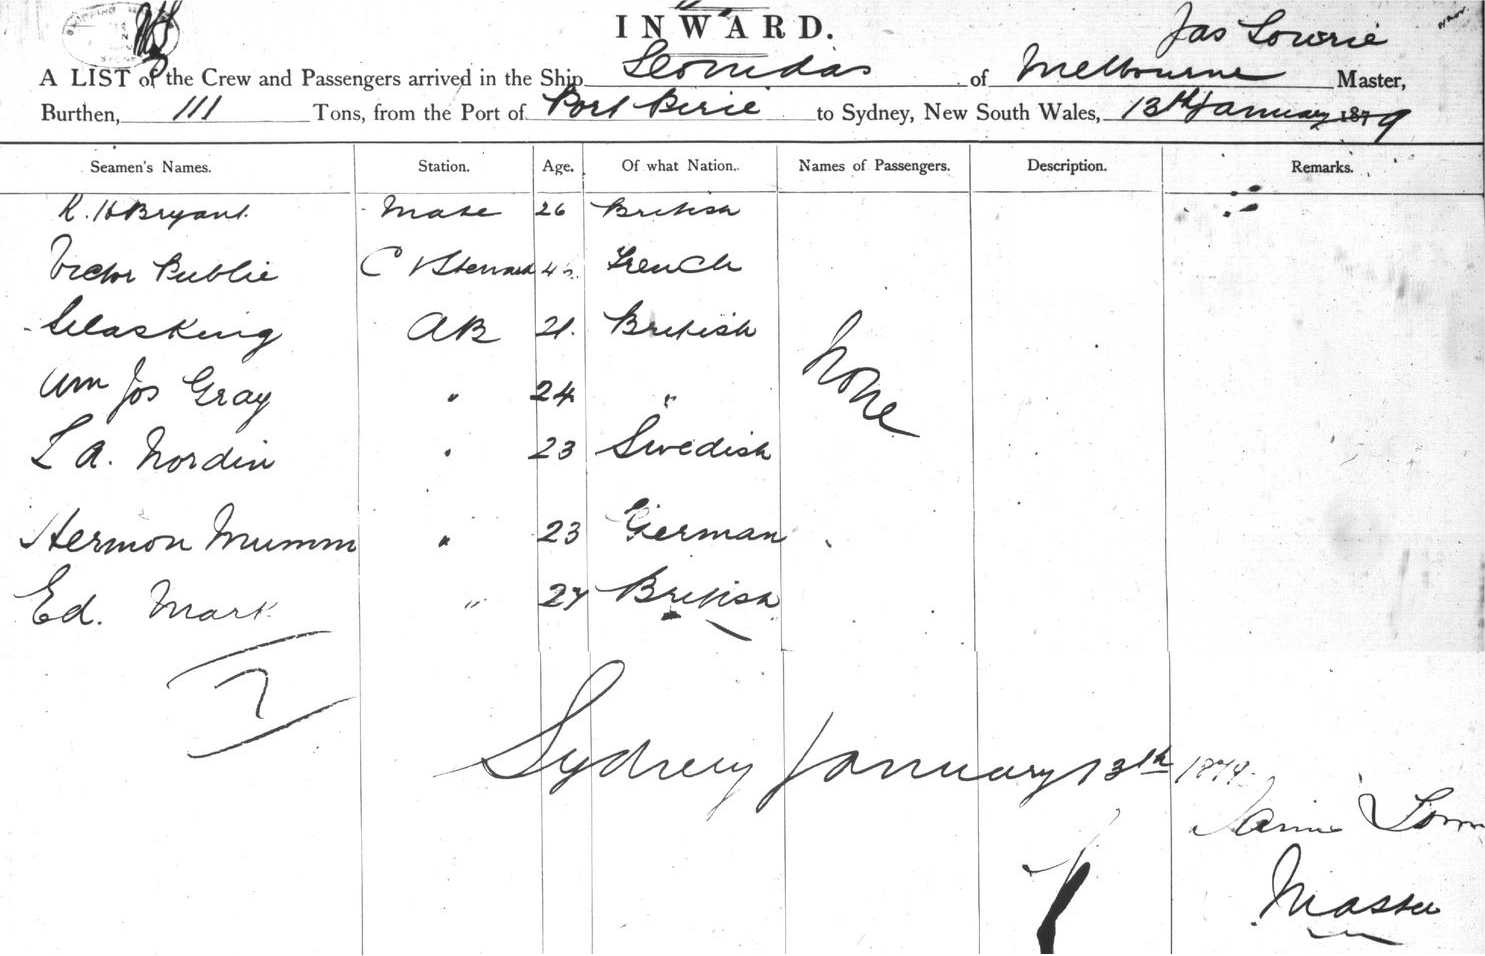 INWARD.
Jas Lowrie
A LIST of the Crew and Passengers arrived in the Ship Leonidas of Melbourne Master,
Burthen, 111 Tons, from the Port of Port Pirie to Sydney, New South Wales, 13th January 1879
Seamen's Names. Station. Age. Of what Nation. Names of Passengers. Description. Remarks.
R. H Bryant Mate 26 British
Victor Publie C & Steward French
Silas King AB 21 British
Wm Jos Gray " 24 "
L A. Nordin " 23 Swedish
None
Hermon Mumm " 23 German
Ed. Mark " 27 British
7
Sydney January 13th 1879
James Lowrie
Master